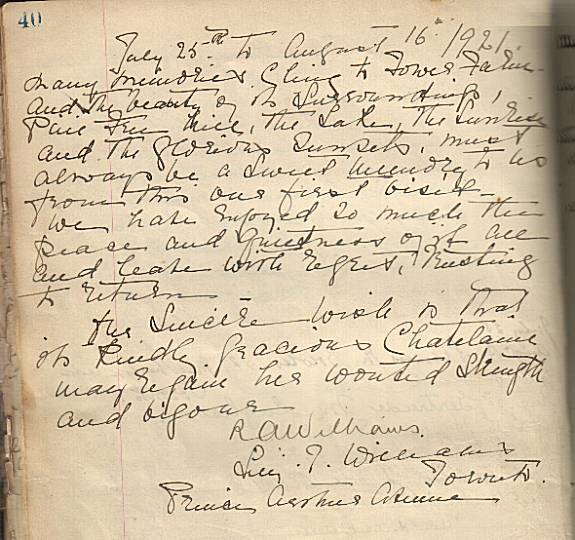 40
July 25th to August 16th 1921.
Many memories cling to Tower Farm
and the beauty of its surroundings,
Pine Tree Hill, the Lake, the sunrise
and the glorious sunsets, must
always be a sweet memory to us
from this our first visit.
We have enjoyed so much the
peace and quietness of it all
and leave with regret, trusting
to return
The sincere wish is that
its kindly gracious Chatelaine
may regain her wonted strength
and vigour
R A Williams.
J. Williams
Toronto.
Prince Arthur Avenue